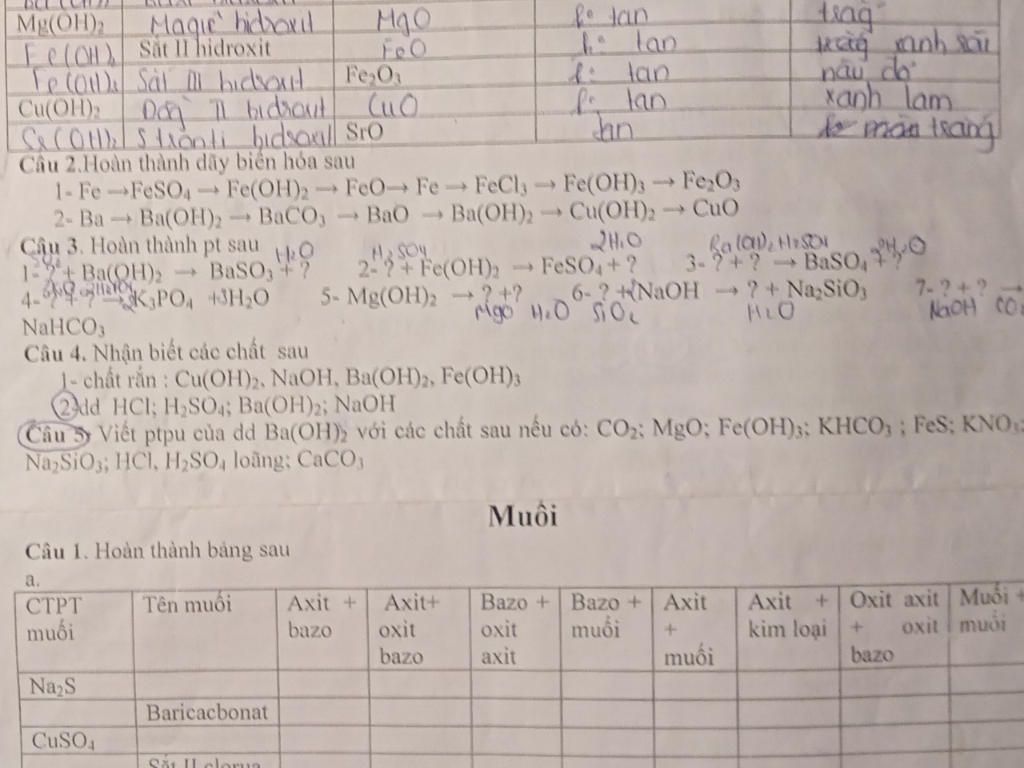 Mg(OH)₂ Magiê hidroxit MgO k: tan trắg
Fe(OH)₂ Sắt II hidroxit FeO k: tan trắng xanh
Fe(OH)₃ Sắt III hidroxit Fe₂O₃ k: tan nâu đỏ
Cu(OH)₂ Đồg II hidroxit CuO k: tan xanh lam
Sr(OH)₂ Stronti hidroxit SrO tan màu trắng
Câu 2.Hoàn thành dãy biến hóa sau
1- Fe →FeSO₄ → Fe(OH)₂ → FeO→ Fe → FeCl₃ → Fe(OH)₃ → Fe₂O₃
2- Ba → Ba(OH)₂ → BaCO₃ → BaO → Ba(OH)₂ → Cu(OH)₂ → CuO
Câu 3. Hoàn thành pt sau
H₂O H₂SO₄ 2H₂O Ba(OH)₂ H₂SO₄ 2H₂O
1- ? + Ba(OH)₂ → BaSO₃ + ? 2- ? + Fe(OH)₂ → FeSO₄ + ? 3- ? + ? → BaSO₄ + ?
4- ? + ? → 2K₃PO₄ +3H₂O 5- Mg(OH)₂ → ? +? 6- ? +2NaOH → ? + Na₂SiO₃ 7- ? + ? →
MgO H₂O SiO₂ H₂O NaOH CO₂
NaHCO₃
Câu 4. Nhận biết các chất sau
1- chất rắn : Cu(OH)₂, NaOH, Ba(OH)₂, Fe(OH)₃
2-dd HCl; H₂SO₄; Ba(OH)₂; NaOH
Câu 5. Viết ptpu của dd Ba(OH)₂ với các chất sau nếu có: CO₂; MgO; Fe(OH)₃; KHCO₃ ; FeS; KNO₃;
Na₂SiO₃; HCl, H₂SO₄ loãng; CaCO₃
Muối
Câu 1. Hoàn thành bảng sau
a.
CTPT muối Tên muối Axit + bazo Axit+ oxit bazo Bazo + oxit axit Bazo + muối Axit + muối Axit + kim loại Oxit axit + oxit bazo Muối + muối
Na₂S
Baricacbonat
CuSO₄
Sắt II clorua